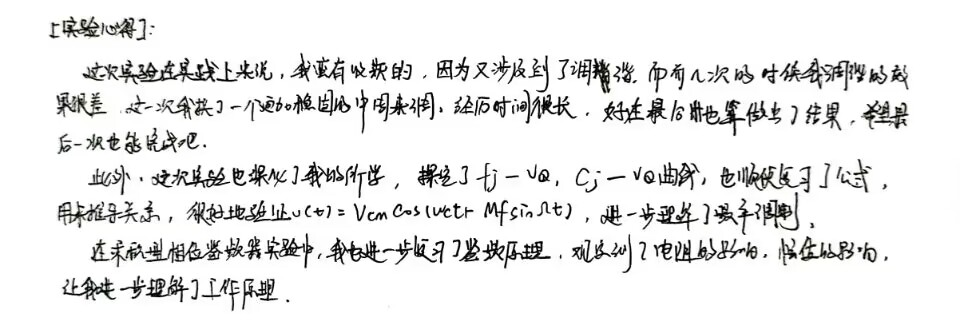 [实验心得]:
这次实验在实践上来说,我蛮有收获的,因为又涉及到了调谐.而前几次的时候我调谐的效
果很差.这一次我换了一个更加稳固的中周来调,经历时间很长,好在最后也算做出了结果,希望最
后一次也能完成吧.
此外,这次实验也深化了我的所学,探究了fj-VQ,Cj-VQ曲线,也顺便复习了公式,
用来推导关系,很好地验证u(t)=Vcm Cos(wct+Mf sinΩt),进一步理解了频率调制.
在乘积型相位鉴频器实验中,我也进一步复习了鉴频原理,观察到了电阻的影响,幅值的影响,
让我进一步理解了工作原理.